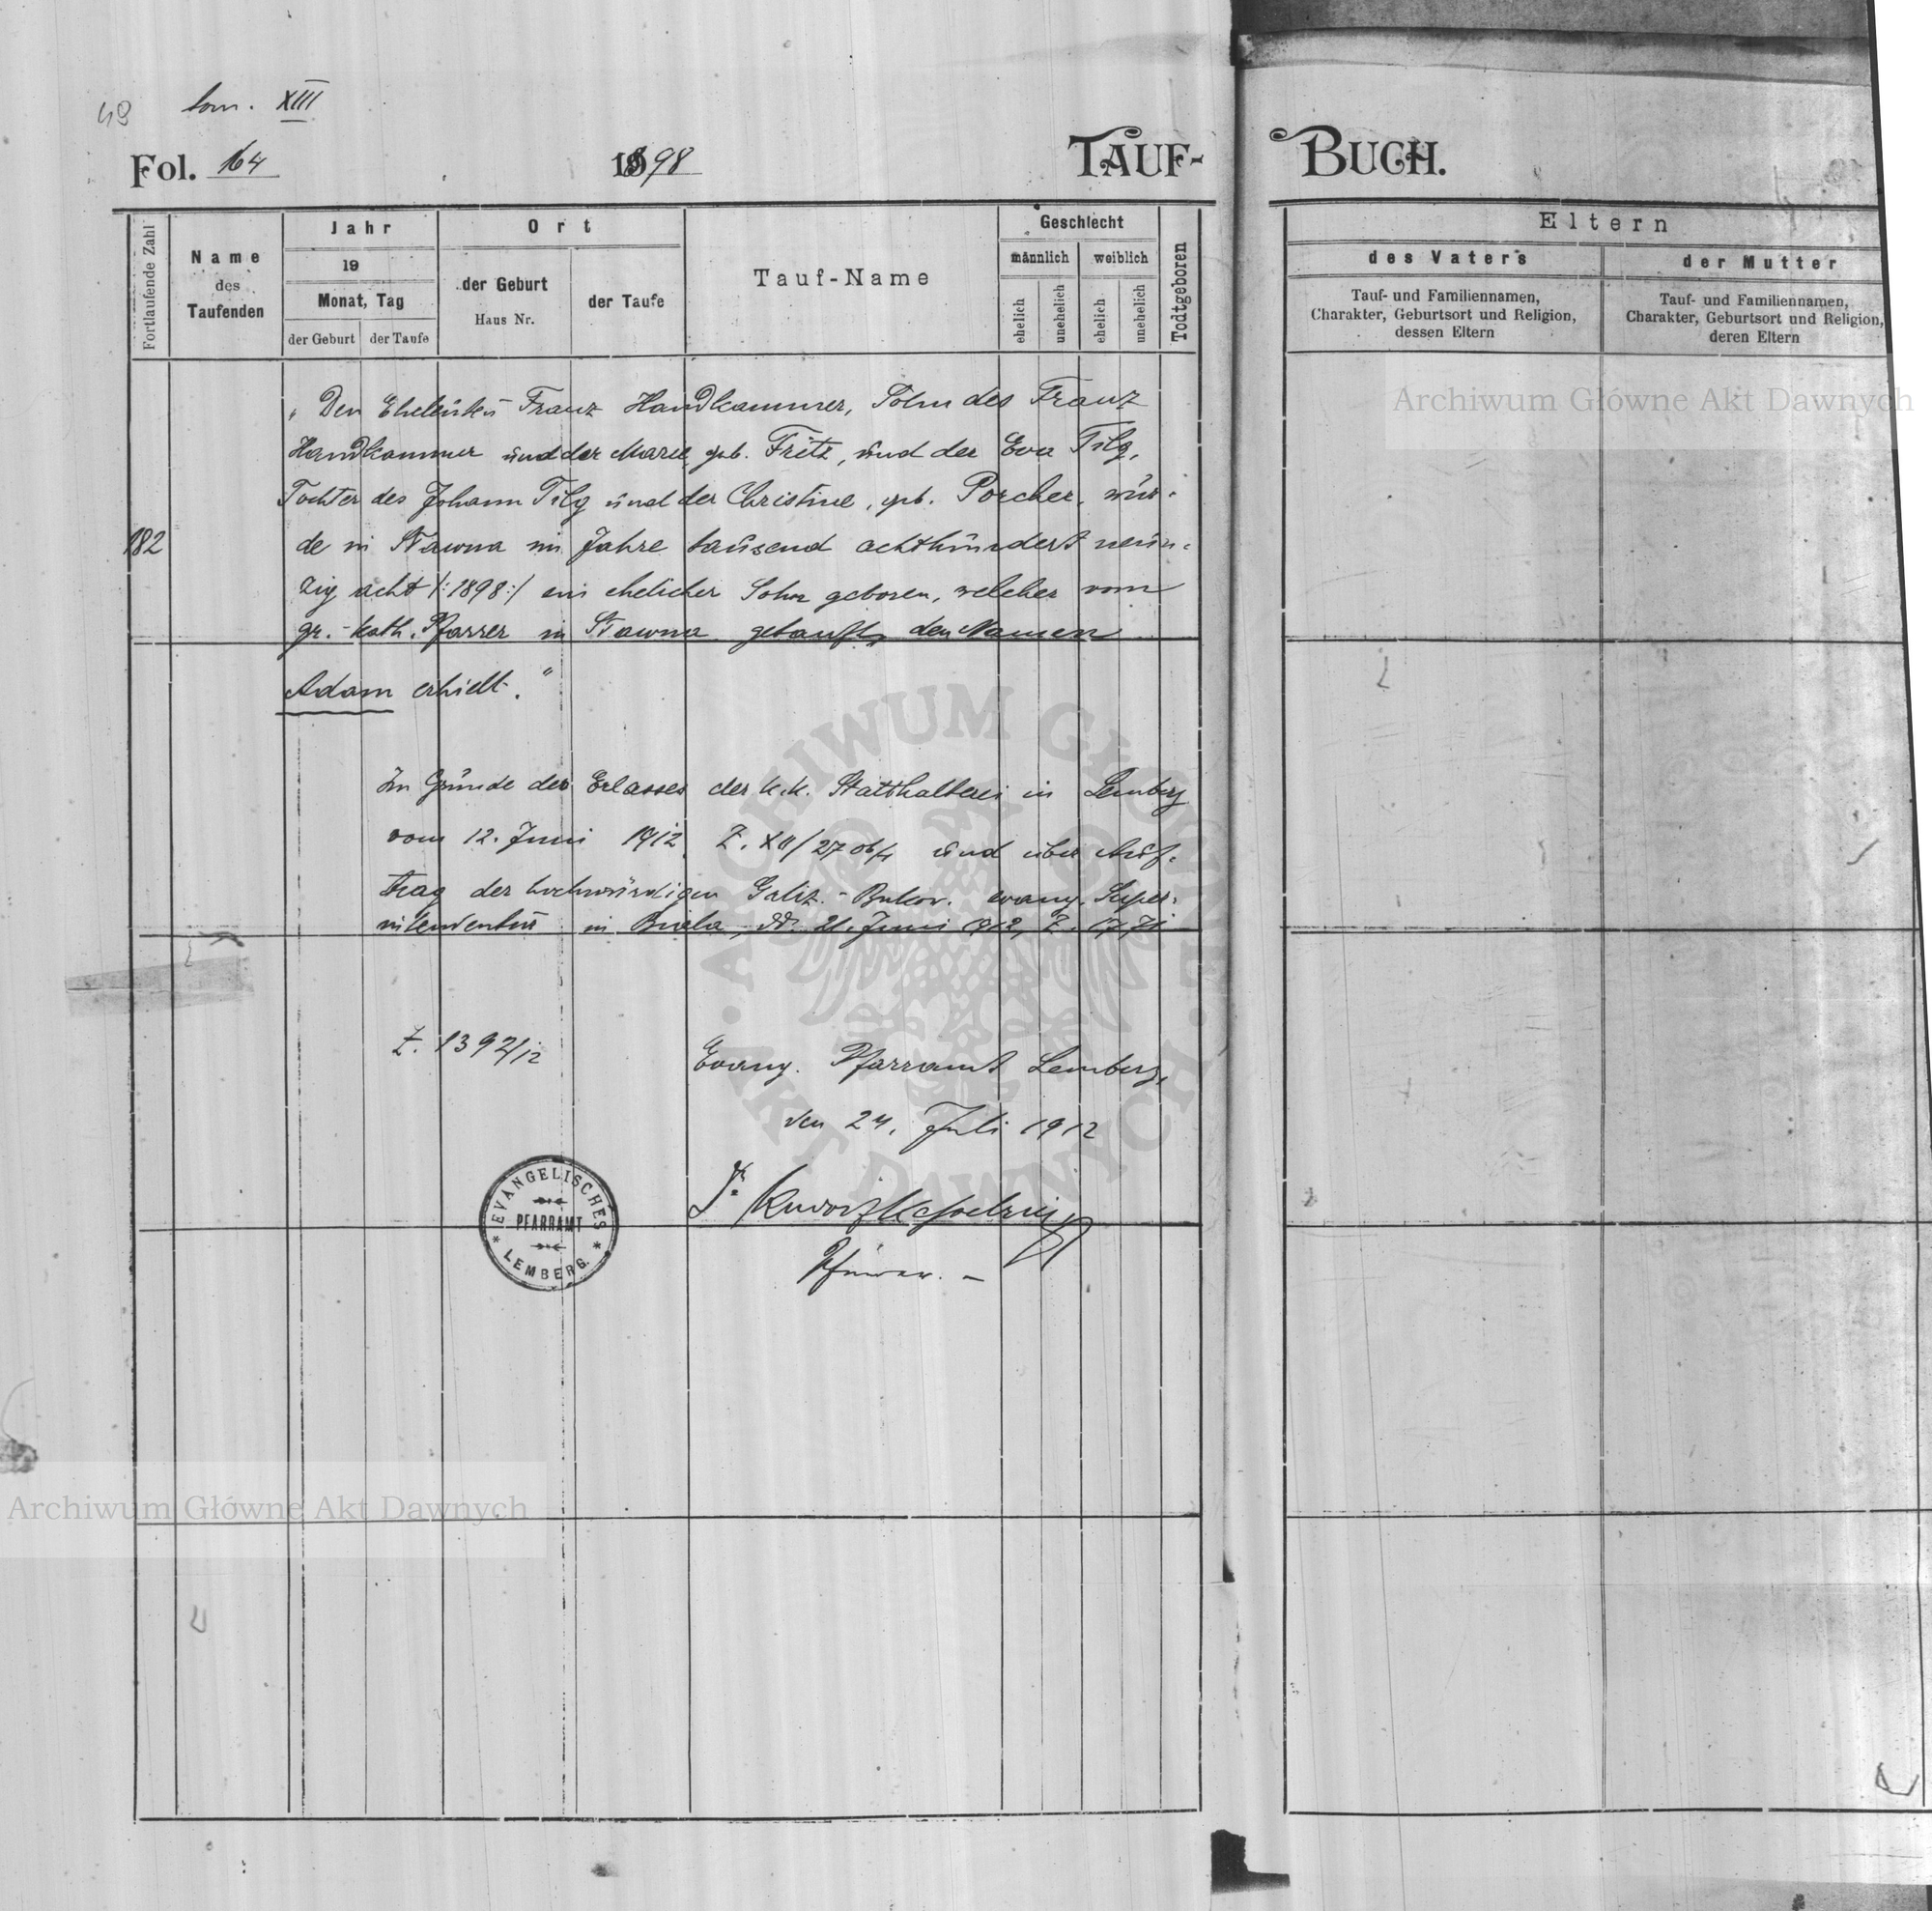 49 tom. XIII
Fol. 164 1898 TAUF-BUCH.
Fortlaufende Zahl
Name
des
Taufenden
Jahr
19
Monat, Tag
der Geburt der Taufe
Ort
der Geburt
Haus Nr.
der Taufe
Tauf-Name
Geschlecht
männlich weiblich
ehelich unehelich ehelich unehelich
Todtgeboren
Eltern
des Vaters
Tauf- und Familiennamen,
Charakter, Geburtsort und Religion,
dessen Eltern
der Mutter
Tauf- und Familiennamen,
Charakter, Geburtsort und Religion,
deren Eltern
„Den Eheleuten Franz Handkammer, Sohn des Franz
Handkammer und der Marie, geb. Fritz, und der Eva Tilg,
Tochter des Johann Tilg und der Christine, geb. Porcher, wur-
182
de in Stawna im Jahre tausend achthundert neun-
zig acht /:1898:/ ein ehelicher Sohn geboren, welcher vom
gr.-kath. Pfarrer in Stawna getauft, den Namen
Adam erhielt."
Im Grunde des Erlasses der k.k. Statthalterei in Lemberg
vom 12. Juni 1912, Z. XII/2706/4 und über Auf-
trag der hochwürdigen Galiz.-Bukow. evang. Super-
intendentur in Biala, dd. 21. Juni 1912, Z.
Z. 1392/12
Evang. Pfarramt Lemberg,
den 24. Juli 1912
Pfarrer. –
EVANGELISCHES
PFARRAMT
LEMBERG.
Archiwum Główne Akt Dawnych
ARCHIWUM GŁÓWNE AKT DAWNYCH
Archiwum Główne Akt Dawnych